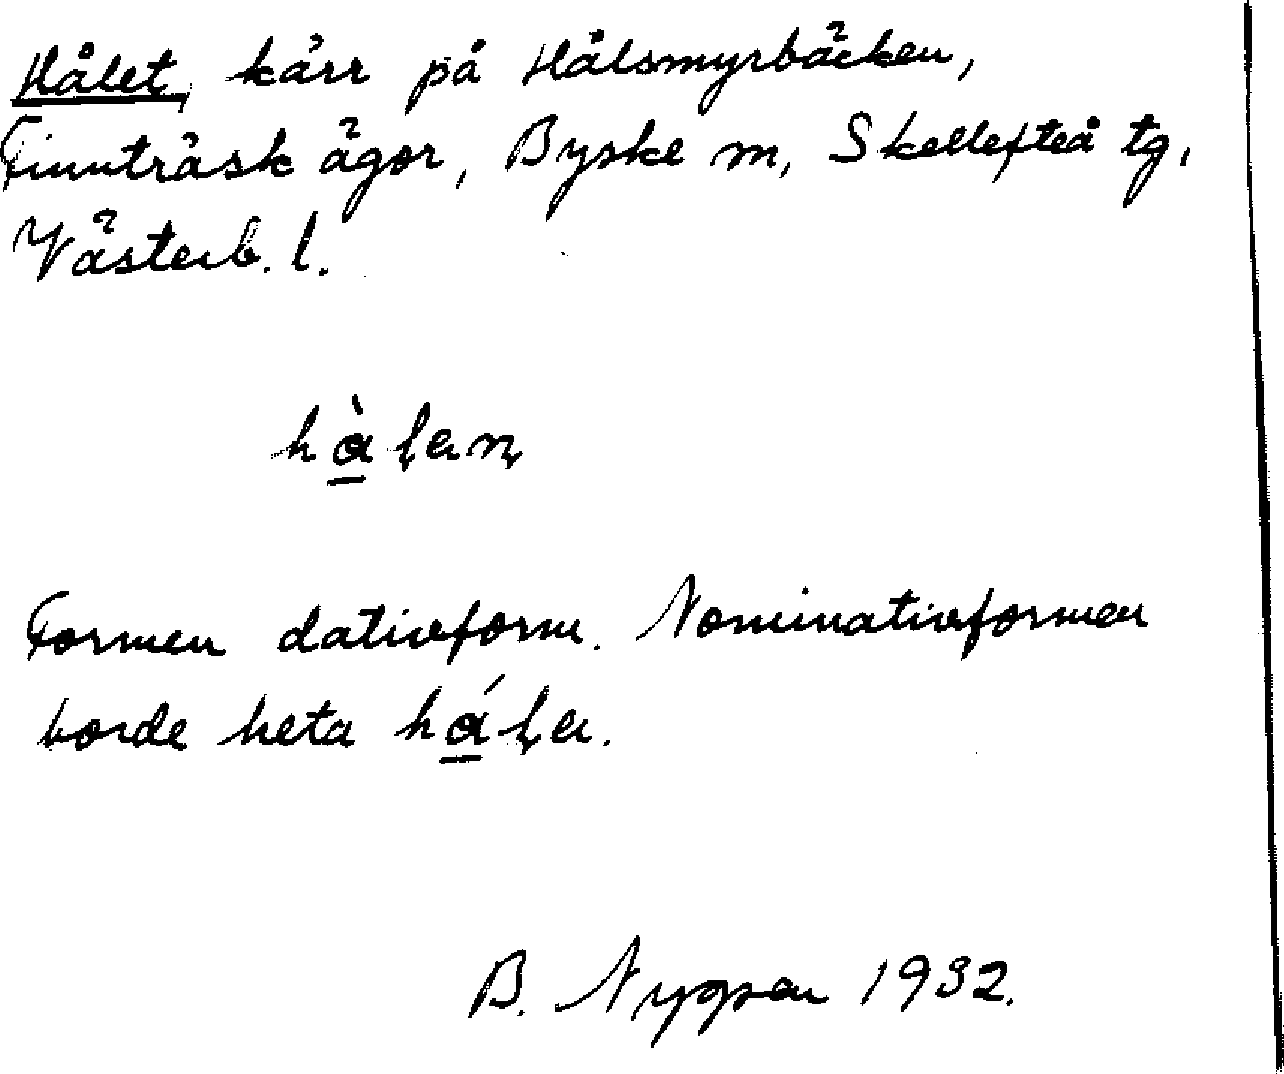 Hålet, kärr på Hålsmyrbäcken,
Finnträsk ägor, Byske m, Skellefteå tg,
Västerb. l.
hàlan
Formen dativform. Nominativformen
borde heta hála.
B. Nygren 1932.